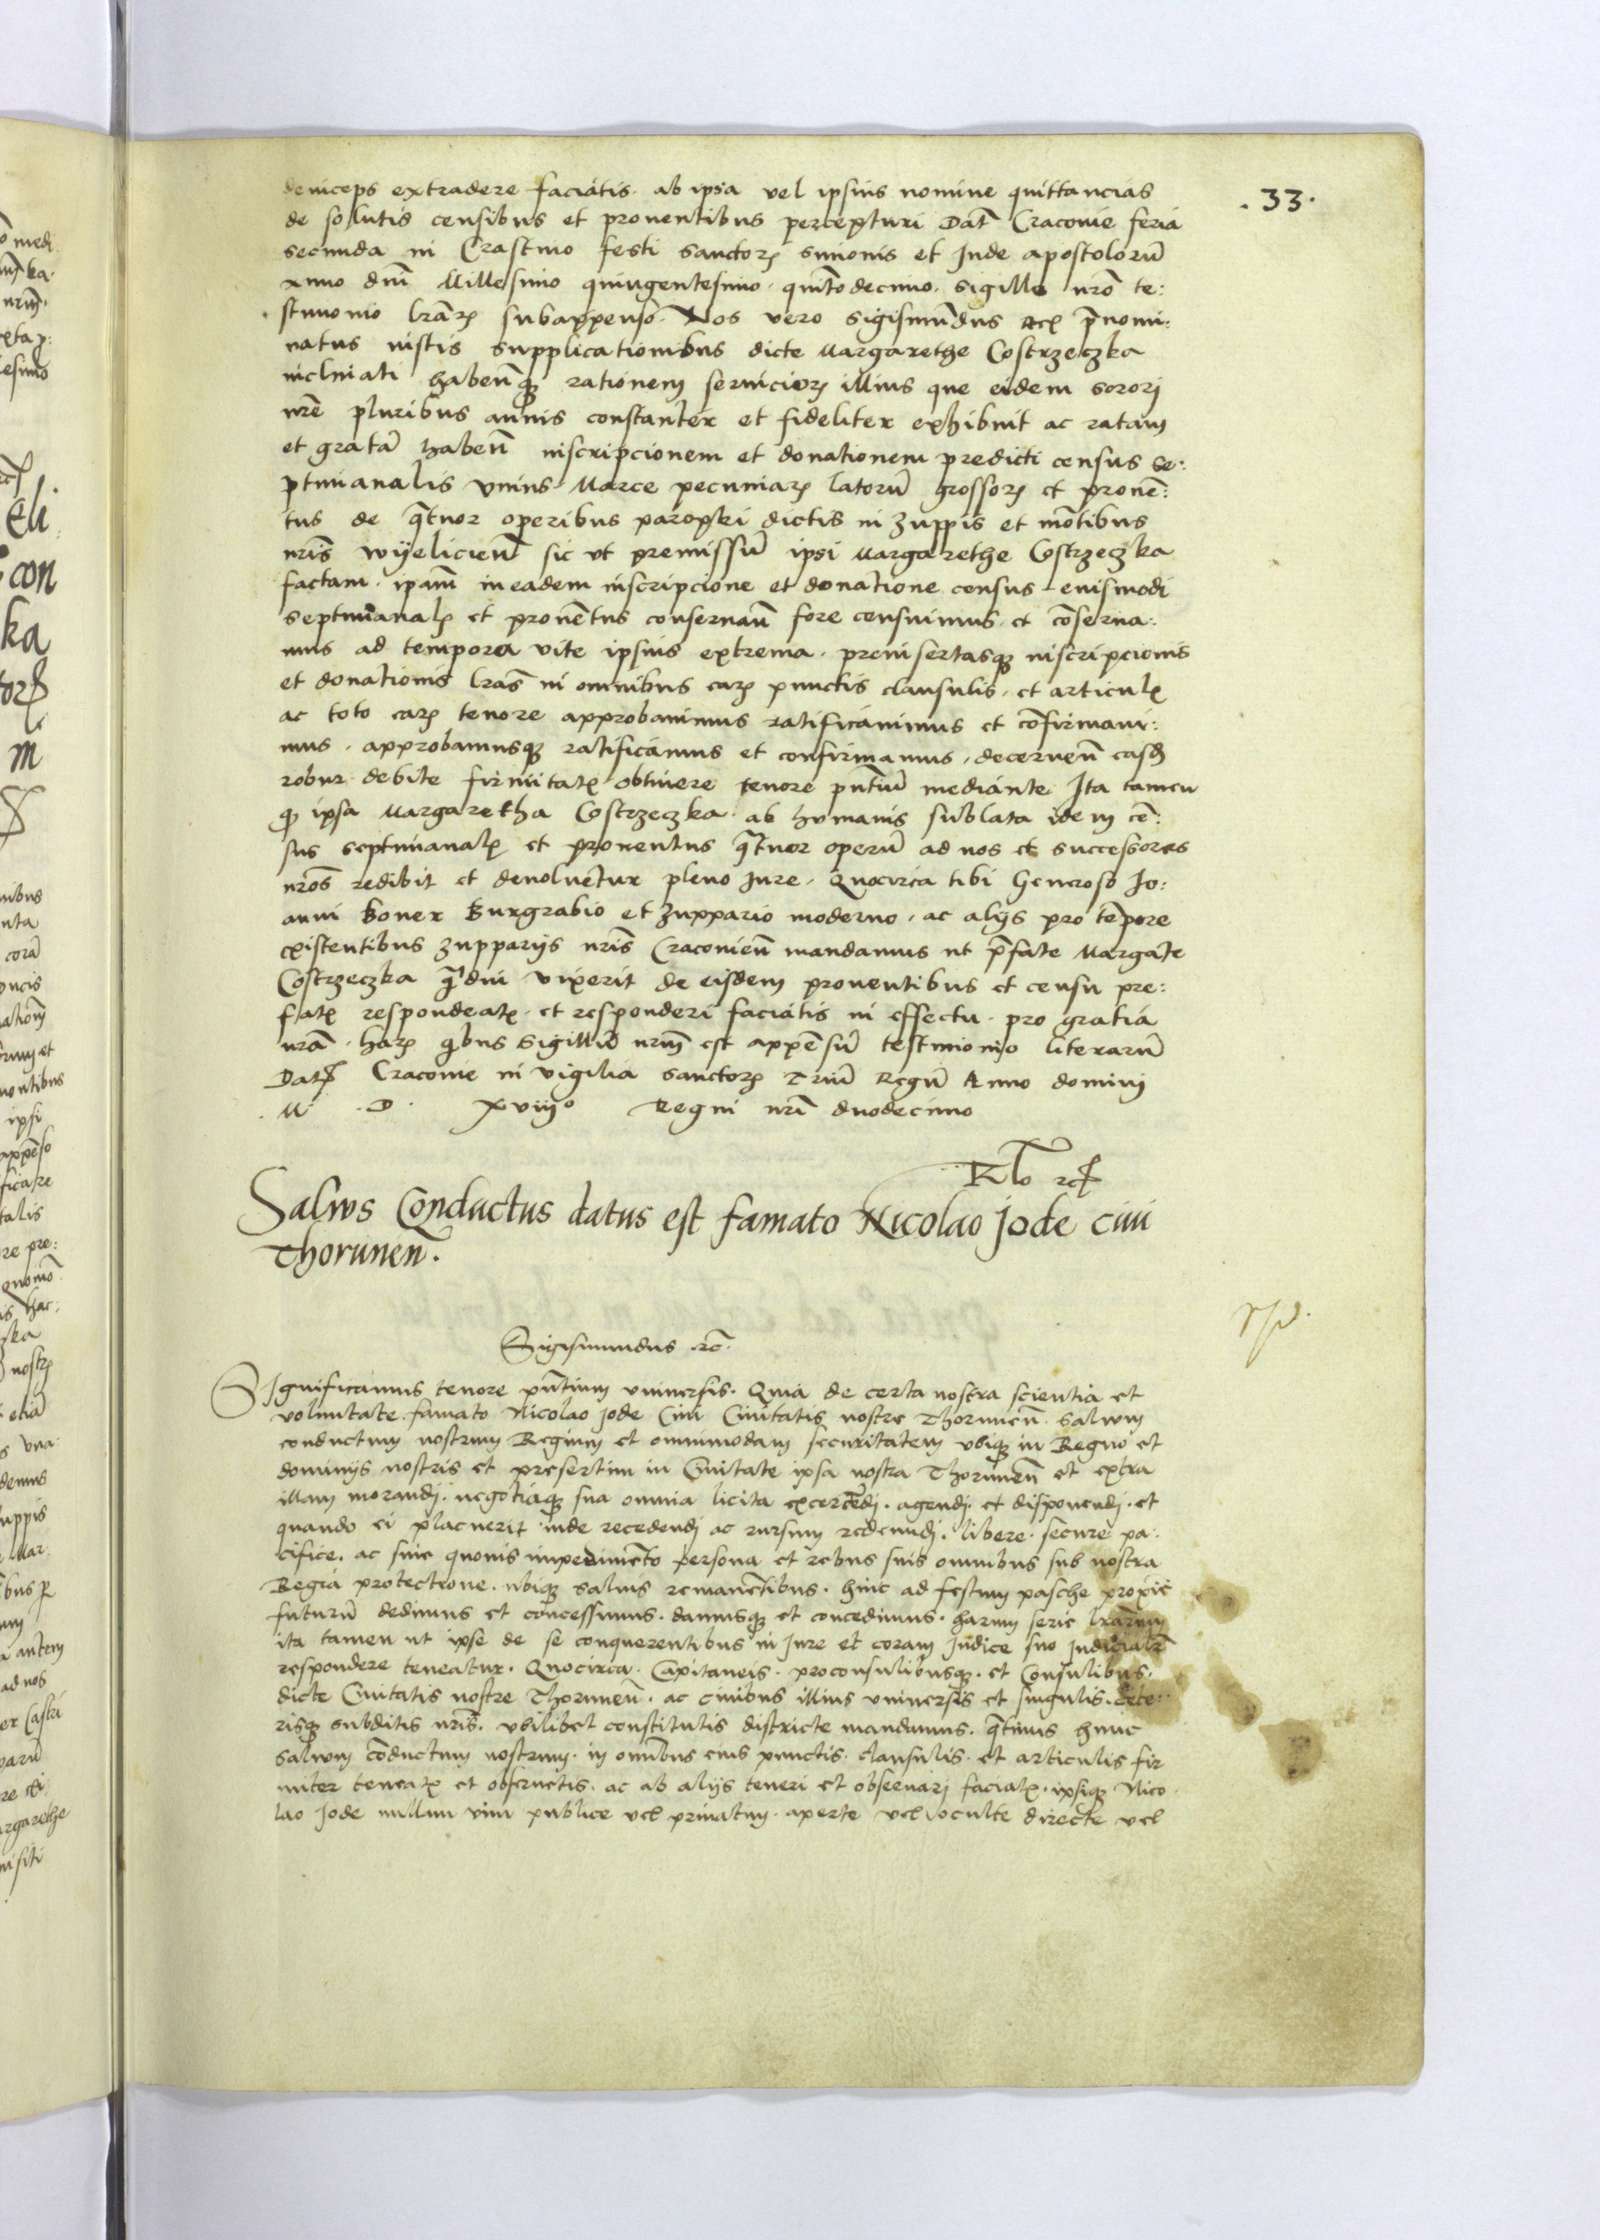 .33.
deinceps extradere faciatis. ab ipsa vel ipsius nomine quittancias
de solutis censibus et proventibus percepturi Dat̃ Cracovie feria
secunda in Crastino festi sanctoꝝ Simonis et Jude apostolorũ
Anno dñi Millesimo quingentesimo. quĩtodecimo. sigillo nr̃o te:
stimonio lr̃aꝝ subappenso. Nos vero Sigismũdus Rex p̃nomi:
natus iustis supplicationibus dicte Margarethe Costrzeczka
inclinati habeñqꝫ rationem servicioꝝ illius que eidem sorori
nr̃e pluribus annis constanter et fideliter exhibuit ac ratam
et gratã habeñ inscripcionem et donationem predicti census se:
ptimanalis unius Marce pecuniaꝝ latorũ grossoꝝ et provẽ:
tus de q̃tuor operibus paropski dictis in Zuppis et mõtibus
nr̃is Wyelicień sic ut premissũ ipsi Margarethe Costrzeczka
factam. ipam̃ in eadem inscripcione et donatione census eiusmodi
septimanalꝭ et provẽtus conservañ fore censuimus. et cõserva:
mus ad tempora vite ipsius extrema. preinsertasqꝫ inscripcionis
et donationis lr̃as in omnibus eaꝝ punctis clausulis. et articulꝭ
ac toto eaꝝ tenore approbavimus ratificavimus et cõfirmavi:
mus. approbamusqꝫ ratificamus et confirmamus, decerneñ easdẽ
robur debite firmitatꝭ obtinere tenore pñtiũ mediante Ita tamen
qꝫ ipsa Margaretha Costrzeczka. ab humanis sublata idem cẽ:
sus septimanalꝭ et proventus q̃tuor operũ ad nos et successores
nr̃os redibit et devolvetur pleno iure. Quocirca tibi Generoso Jo:
anni Boner Burgrabio et Zuppario moderno. ac alijs pro tẽpore
existentibus Zupparijs nr̃is Cracovień mandamus ut p̃fate Margarẽte
Costrzeczka q̃diu vixerit de eisdem proventibus et censu pre:
fatꝭ respondeatꝭ. et responderi faciatis in effectu. pro gratia
nr̃a. haꝝ qꝫbus sigillũ nr̃m est appẽsũ testimonio literarũ
Datꝭ Cracovie in vigilia sanctoꝝ Triũ Regũ Anno domini
M . D . xviij° Regni nr̃i duodecimo
Salvus Conductus datus est famato Nicolao Jode civi
Thorunen̄.
Sigismundus rc̃.
Significamus tenore pñtium universis. Quia de certa nostra scientia et
voluntate. famato Nicolao Jode Civi Civitatis nostre Thorunen̄. salvum
conductum nostrum Regium et omnimodam securitatem ubiqꝫ in Regno et
dominijs nostris et presertim in Civitate ipsa nostra Thorunen̄ et extra
illam morandj. negotiaqꝫ sua omnia licita excercẽdj. agendj. et disponendj. et
quando ei placuerit inde recedendj ac rursum redeundj. libere. secure pa:
cifice. ac sine quovis impedimẽto persona et rebus suis omnibus sub nostra
Regia protectione. ubiqꝫ salvis remanẽtibus. hinc ad festum pasche proxie
futurũ dedimus et concessimus. damusqꝫ et concedimus. harum serie lr̃arum
ita tamen ut ipse de se conquerentibus in iure et coram iudice suo iudicialr̃
respondere teneatur. Quocirca. Capitaneis. proconsulibusqꝫ. et Consulibus.
dicte Civitatis nostre Thorunen̄. ac civibus illius universis et singulis. cete:
risqꝫ subditis nr̃is. ubilibet constitutis districte mandamus. q̃tinus hunc
salvum cõductum nostrum. in omĩbus eius punctis. clausulis. et articulis fir
miter teneatꝭ et observetis. ac ab alijs teneri et observarj faciatꝭ. ipsiqꝫ Nico
lao Jode nullam vim publice vel privatim. aperte vel oculte directe vel